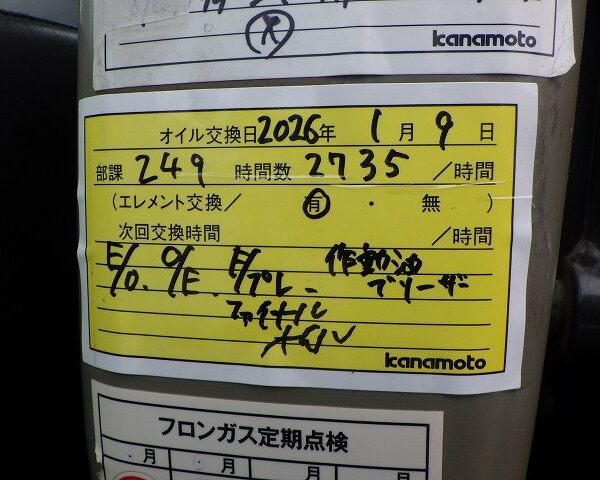 kanamoto
オイル交換日2026年 1月 9日
部課 249 時間数 2735 /時間
(エレメント交換/ 有 ・ 無 )
次回交換時間 /時間
E/O. O/E. E/プレ- 作動油
ブリーザ
ファイナル
オイル
kanamoto
フロンガス定期点検
月 月 月 月